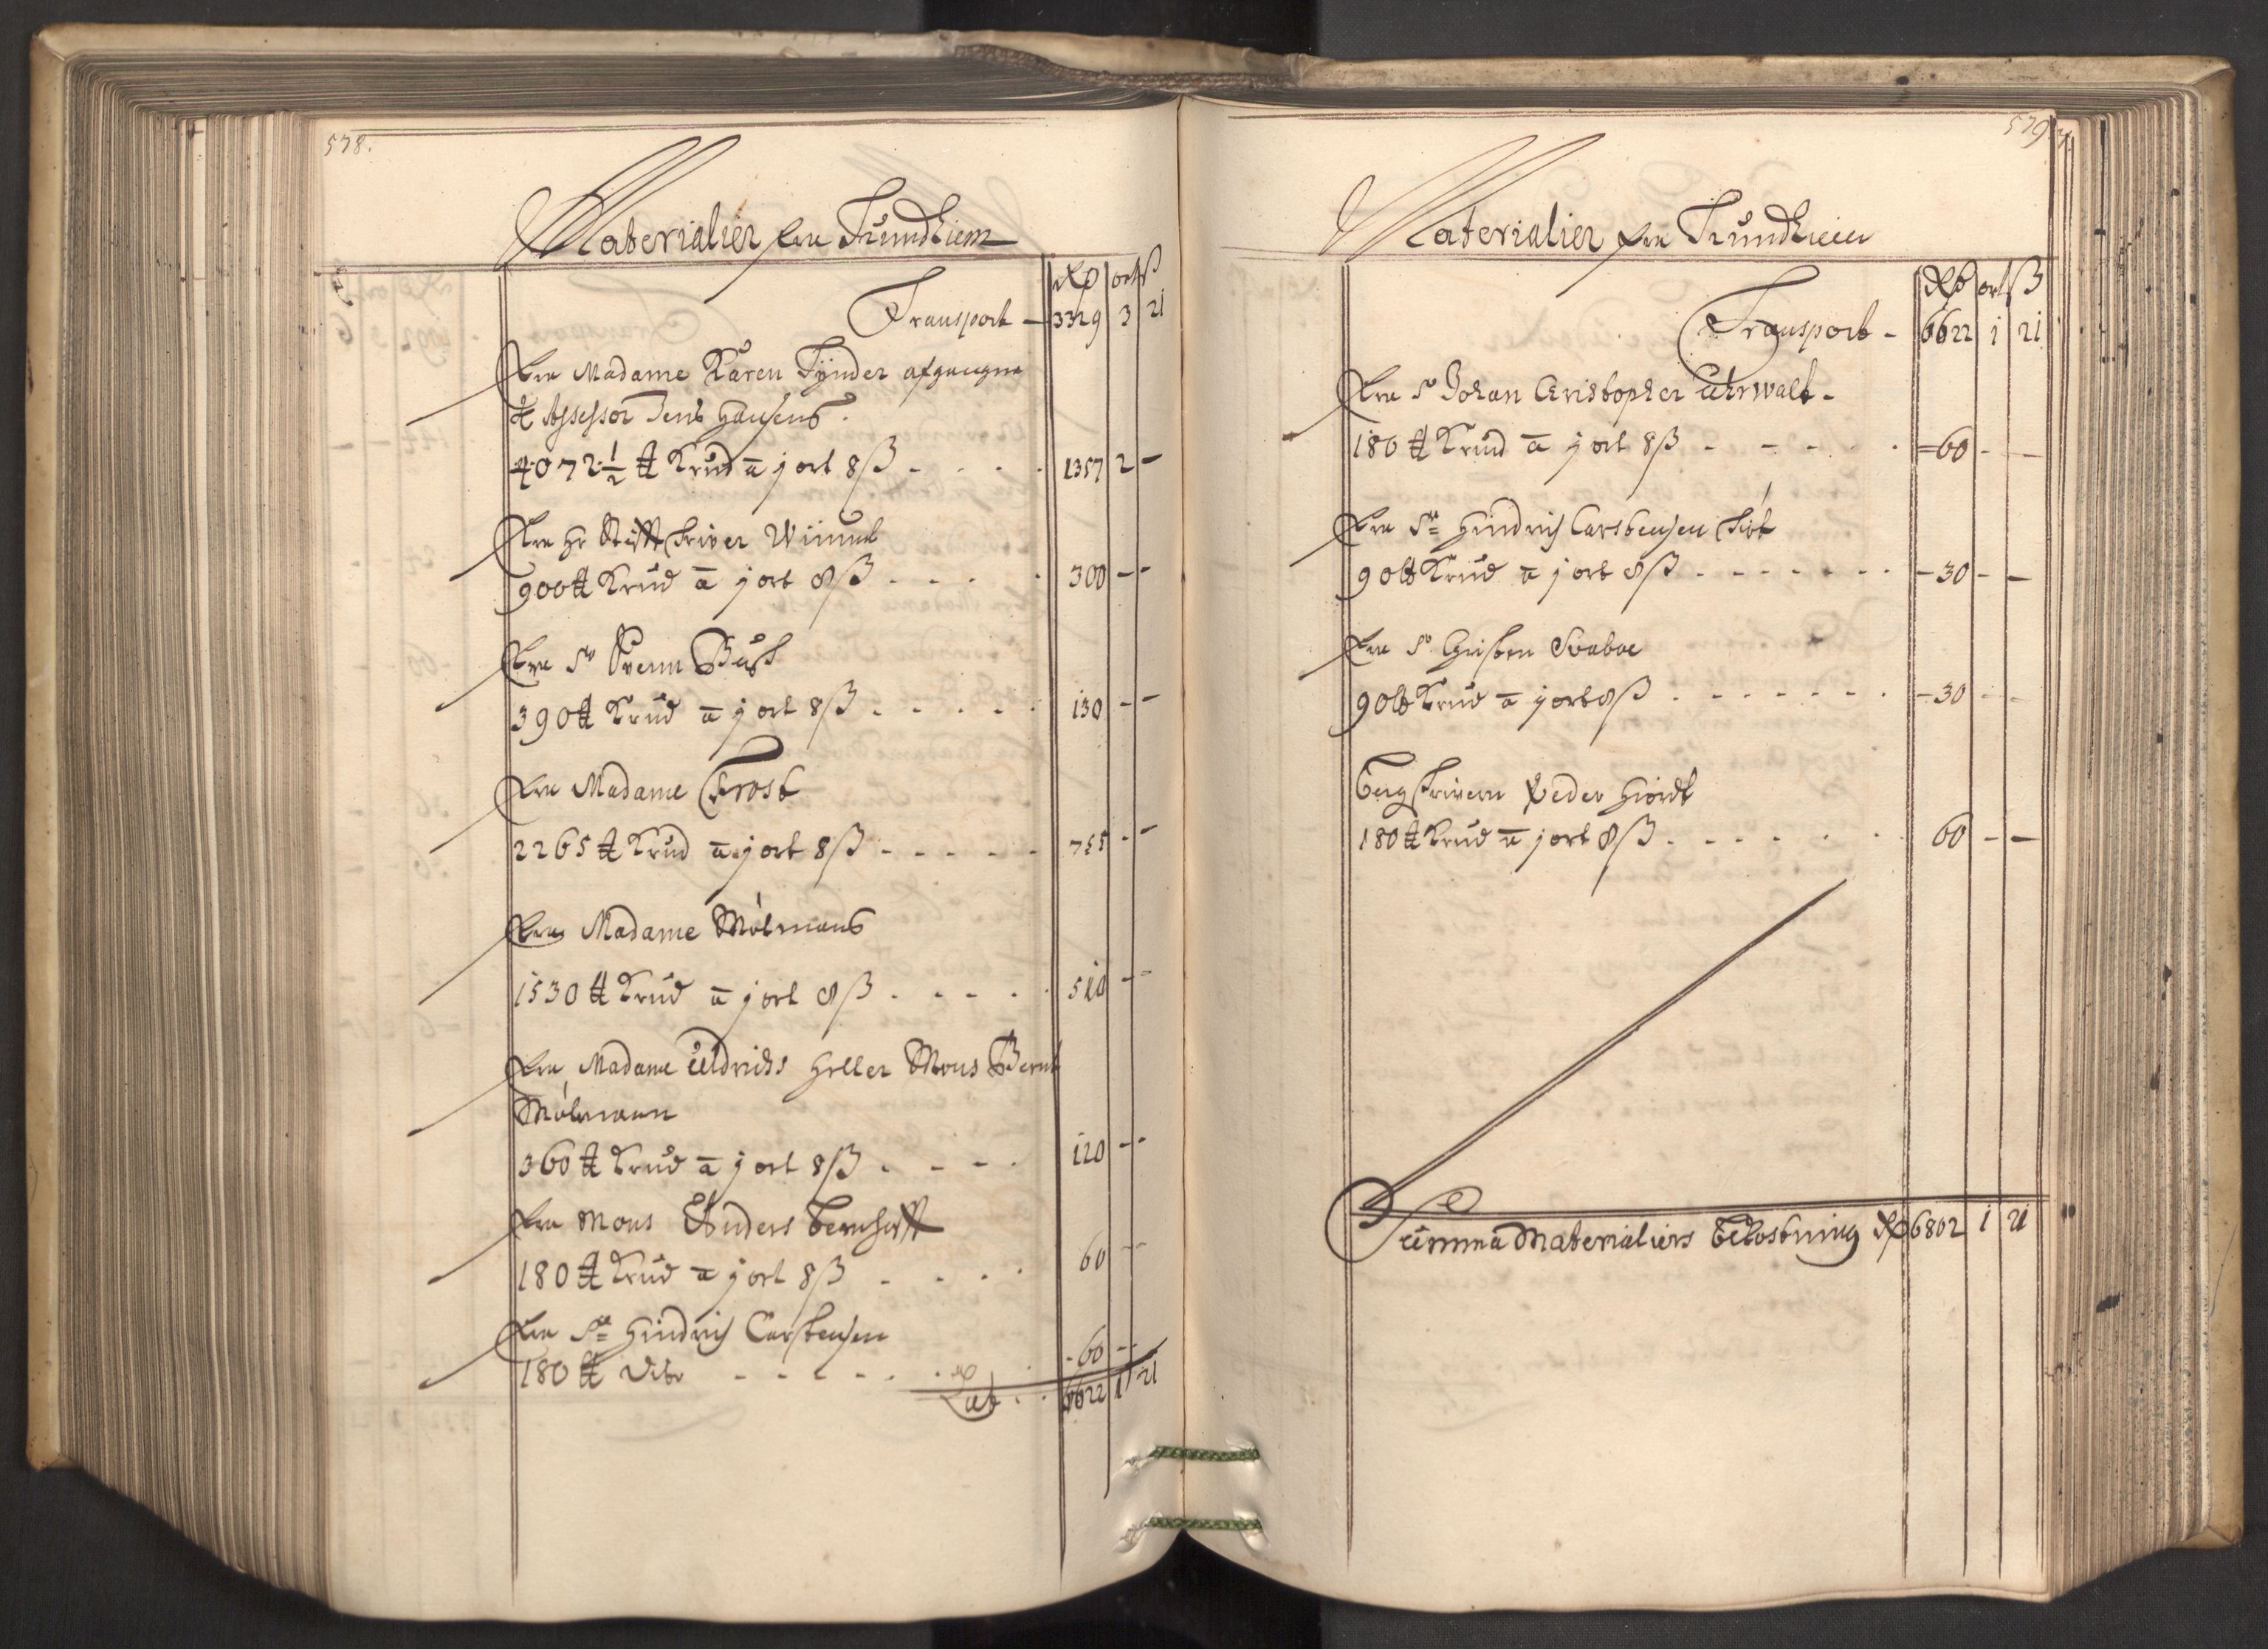 578.
Materialier fra Trundhiem
Rd ort ß
Transport - 3329 3 21
Fra Madame Karen Tÿnder afgangne
H Assessor Jens Hansens.
4072 1/2 ℔ Krud a j ort 8 ß - - - - 1357 2 -
Fra Hr Stifftskriver Wiinnel
900 ℔ Krud a j ort 8 ß - - - - 300 - -
Fra Sr Svenn Busk
390 ℔ Krud a j ort 8 ß - - - - - 130 - -
Fra Madame Frost
2265 ℔ Krud a j ort 8 ß - - - - - 755 - -
Fra Madame Mølmans
1530 ℔ Krud a j ort 8 ß - - - - - 510 - -
Fra Madame Uldrichs heller Mons Bernt
Mølmann
360 ℔ Krud a j ort 8 ß - - - - 120 - -
Fra Mons Anders Bernhofft
180 ℔ Krud a j ort 8 ß - - - - 60 - -
Fra Sr Hindrich Carstensen
180 ℔ dito - - - - - - 60 - -
Lat. 6622 1 21
579
Materialier fra Trundhiem
Rd ort ß
Transport - 6622 1 21
Fra Sr Johan Christopher Uhrwalt -
180 ℔ Krud a j ort 8 ß - - - - - 60 - -
Fra Sr Hindrich Carstensen
90 ℔ Krud a j ort 8 ß - - - - - - - 30 - -
Fra Sr Christen Svaboe
90 ℔ Krud a j ort 8 ß - - - - - - - 30 - -
Bergskrivern Peder Hiordt
180 ℔ Krud a j ort 8 ß - - - - - - 60 - -
Summa Materialiers bekostning Rd 6802 1 21